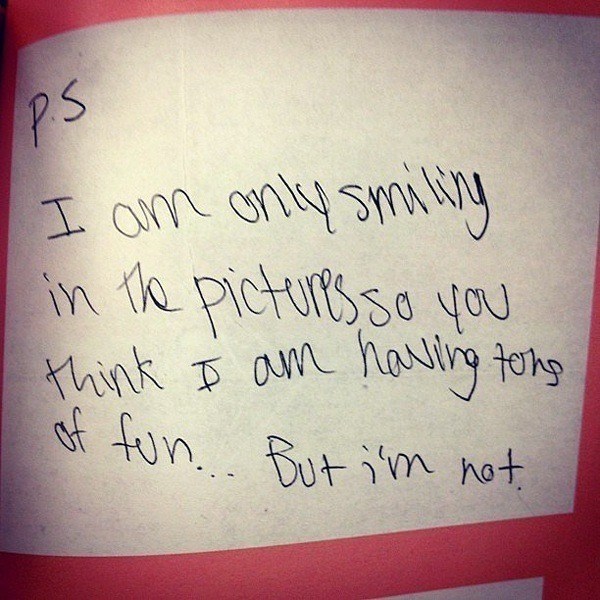 P.S
I am only smiling
in the pictures so you
think I am having tons
of fun... But i'm not.